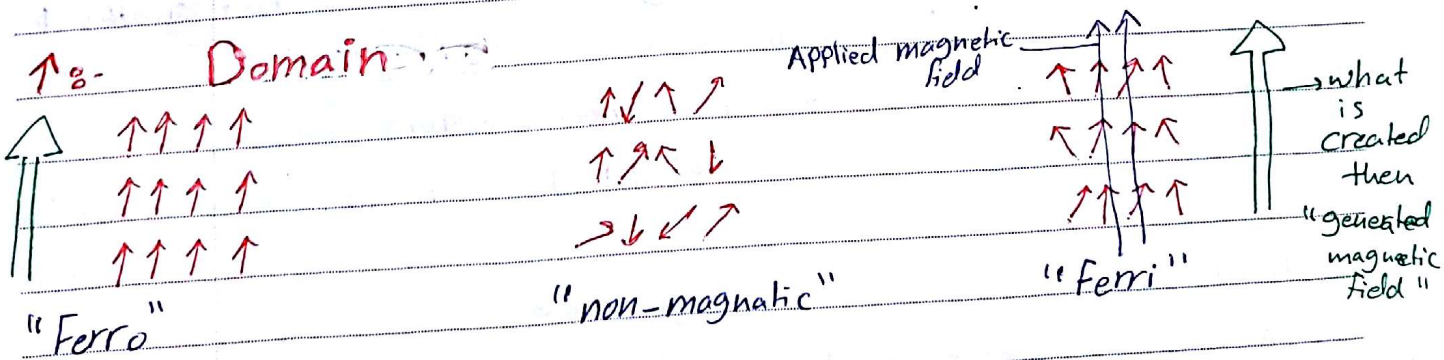 ↑ :- Domain
Applied magnetic
field
→ what
is
created
then
"geneated
magnetic
field"
"Ferro"
"non-magnatic"
"Ferri"